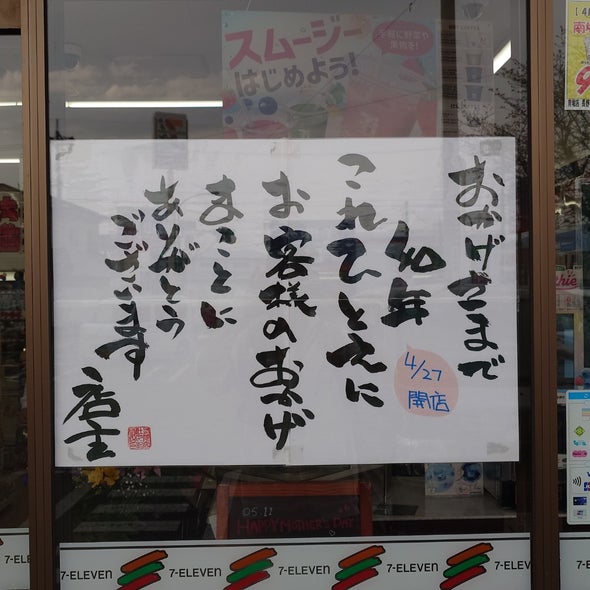 おかげさまで
40年
4/27
開店
これひとえに
お客様のおかげ
まことに
ありがとう
ございます
店主
スムージー
はじめよう!
手軽に野菜や
果肉を!
05.11
HAPPY MOTHER'S DAY
7-ELEVEN
7-ELEVEN
7-ELEVEN
7-ELEVEN
7-ELEVEN
7-ELEVEN